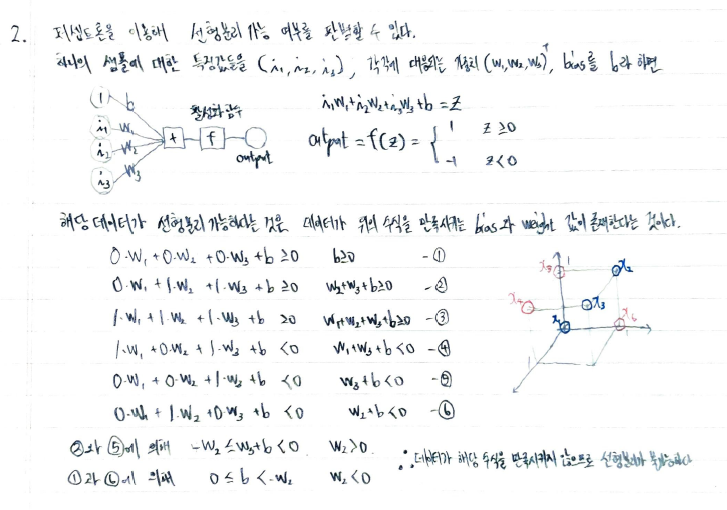 2. 퍼셉트론을 이용해 선형분리 가능 여부를 판별할 수 있다.
하나의 샘플에 대한 특징값들을 (i₁, i₂, i₃), 각각에 대응되는 가중치 (w₁, w₂, w₃)ᵀ, bias를 b라 하면
1 b
i₁ w₁
i₂ w₂
i₃ w₃
+
활성화 함수
f
output
i₁w₁+i₂w₂+i₃w₃+b = z
output = f(z) = { 1 z ≥0
-1 z<0
해당 데이터가 선형분리 가능하다는 것은 데이터가 위의 수식을 만족시키는 bias와 weight 값이 존재한다는 것이다.
0·w₁ + 0·w₂ + 0·w₃ + b ≥0 b≥0 -①
0·w₁ + 1·w₂ + 1·w₃ + b ≥0 w₂+w₃+b≥0 -②
1·w₁ + 1·w₂ + 1·w₃ + b ≥0 w₁+w₂+w₃+b≥0 -③
1·w₁ + 0·w₂ + 1·w₃ + b <0 w₁+w₃+b <0 -④
0·w₁ + 0·w₂ + 1·w₃ + b <0 w₃+b <0 -⑤
0·w₁ + 1·w₂ + 0·w₃ + b <0 w₂+b <0 -⑥
x₅ 1 x₂
x₄ x₃
x₁ 1 x₆
1
②와 ⑤에 의해 -w₂ ≤ w₃+b < 0 w₂>0
①과 ⑥에 의해 0 ≤ b < -w₂ w₂ <0
∴ 데이터가 해당 수식을 만족시키지 않으므로 선형분리가 불가능하다